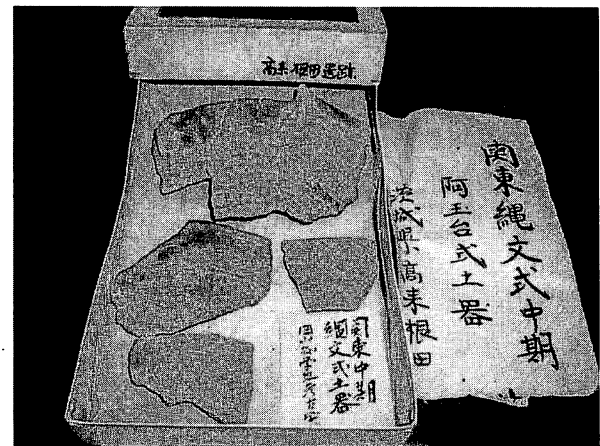 高来根田遺跡
関東縄文式中期
阿玉台式土器
茨城県高来根田
関東中期
縄文式土器